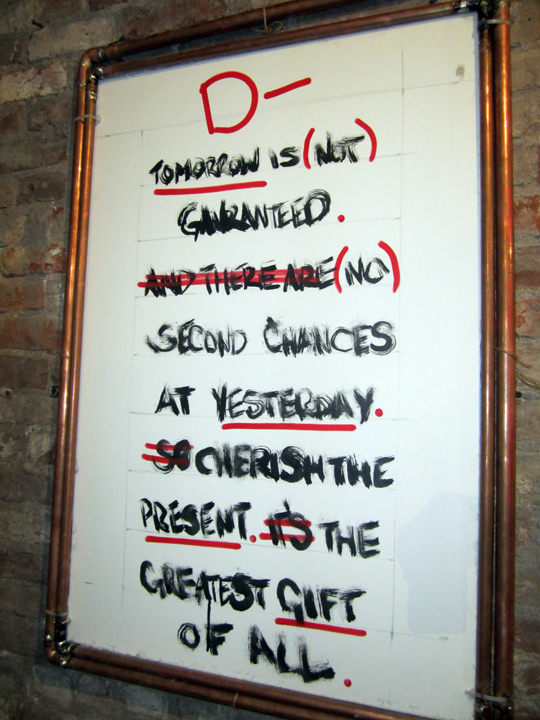 D-
TOMORROW IS (NOT)
GAURANTEED.
AND THERE ARE (NO)
SECOND CHANCES
AT YESTERDAY.
SO CHERISH THE
PRESENT. IT'S THE
GREATEST GIFT
OF ALL.